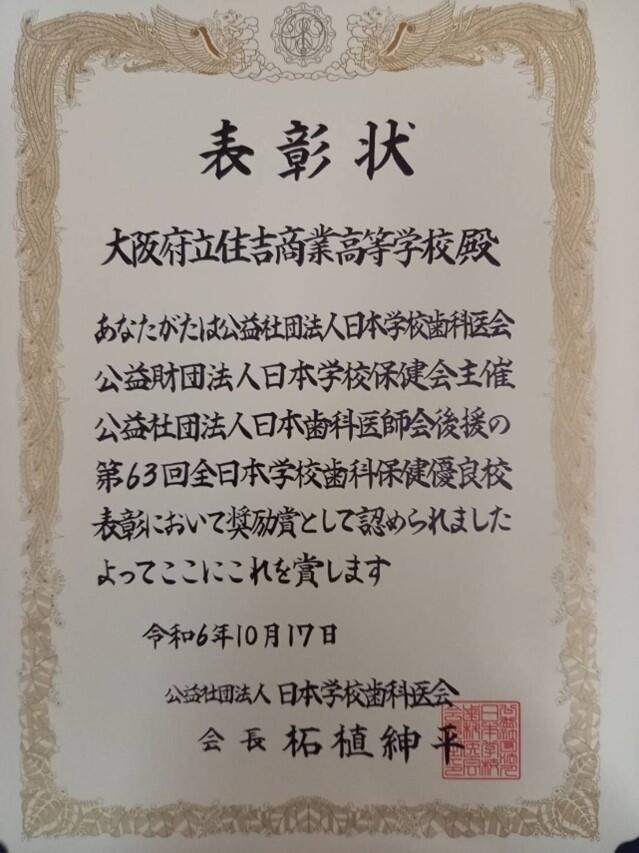 表彰状
大阪府立住吉商業高等学校殿
あなたがたは公益社団法人日本学校歯科医会
公益財団法人日本学校保健会主催
公益社団法人日本歯科医師会後援の
第63回全日本学校歯科保健優良校
表彰において奨励賞として認められました
よってここにこれを賞します
令和6年10月17日
公益社団法人 日本学校歯科医会
会長 柘植紳平